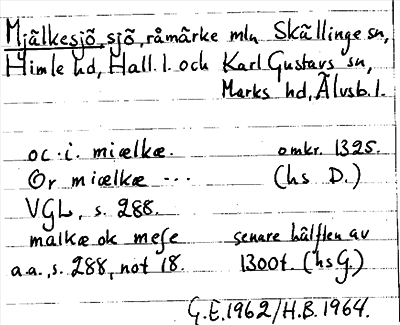 Mjälkesjö, sjö, råmärke mln Skällinge sn,
Himle hd, Hall. l. och Karl Gustavs sn,
Marks hd, Älvsb. l.
oc. i. miælkæ. omkr. 1325.
Or miælkæ --- (hs D.)
VGL, s. 288.
malkæ ok mese senare hälften av
a.a., s. 288, not 18. 1300t. (hs G.)
G.E. 1962/H.B. 1964.